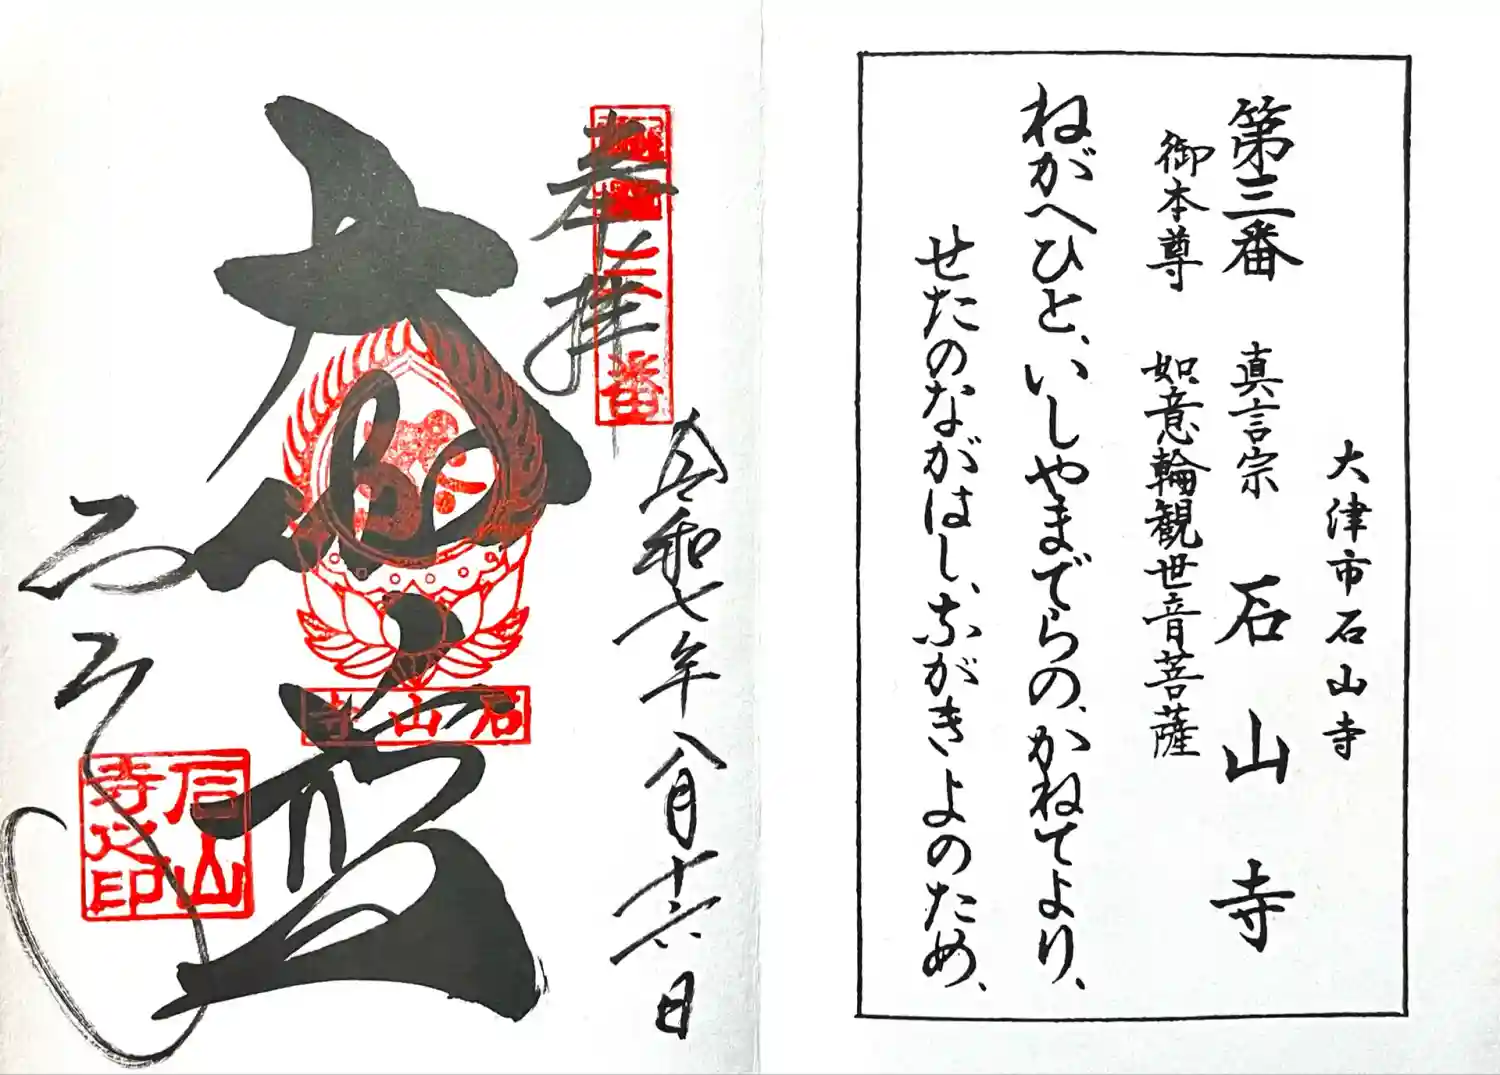 大津市石山寺
第三番 真言宗 石山寺
御本尊 如意輪観世音菩薩
ねがへひと、いしやまでらの、かねてより、
せたのながはし、ながきよのため、
奉拝
三番
令和七年八月十六日
大伽藍
石山寺
石山寺
石山寺之印